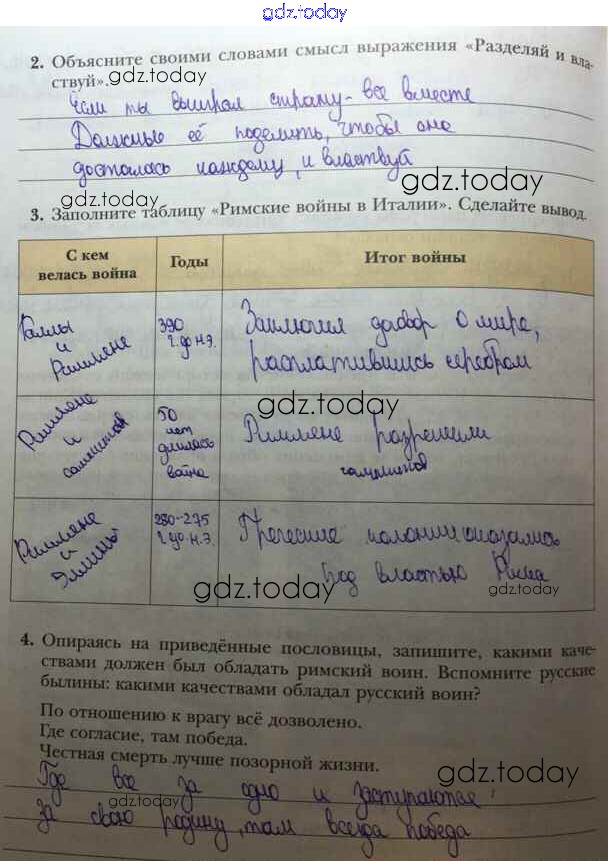 gdz.today
2. Объясните своими словами смысл выражения «Разделяй и вла-
ствуй».
gdz.today
Если ты выиграл страну - все вместе
Должные её поделить, чтобы она
досталась каждому, и властвуй
gdz.today
gdz.today
3. Заполните таблицу «Римские войны в Италии». Сделайте вывод.
С кем
велась война
Годы
Итог войны
Галлы
и
Римляне
390
г. до н.э.
Заключил договор о мире,
расплатившись серебром
gdz.today
Римляне
и
самнитов
50
лет
длилась
война
Римляне разрешили
самнитов
Римляне
и
Эллины
280-275
г. до н.э.
Греческие колонии оказались
под властью Рима
gdz.today
gdz.today
4. Опираясь на приведённые пословицы, запишите, какими каче-
ствами должен был обладать римский воин. Вспомните русские
былины: какими качествами обладал русский воин?
По отношению к врагу всё дозволено.
Где согласие, там победа.
Честная смерть лучше позорной жизни.
gdz.today
Где все за одно и заступаются
за свою родину, там всегда победа
gdz.today